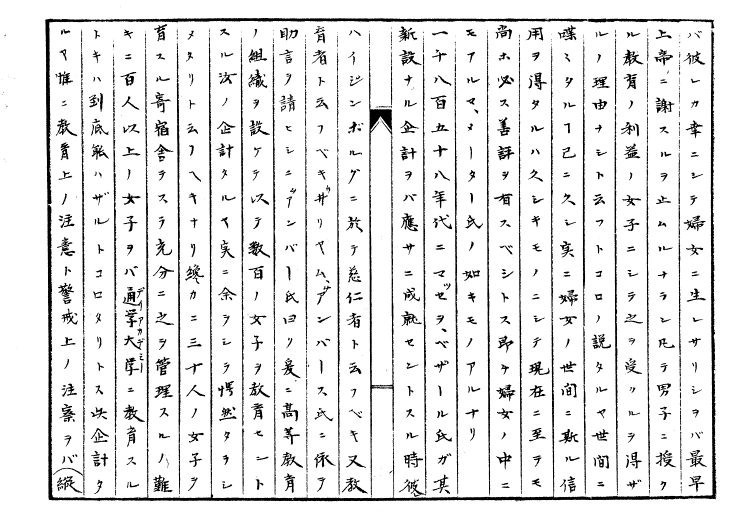 バ彼レカ幸ニシテ婦女ニ生レサリシヲバ最早
上帝ニ謝スルヲ止ムルナラン凡テ男子ニ授ク
ル教育ノ利益ノ女子ニシテ之ヲ受クルヲ得ザ
ルノ理由ナシト云フトコロノ説タルヤ世間ニ
喋々タルヿ已ニ久シ実ニ婦女ノ世間ニ斯ル信
用ヲ得タルハ久シキモノニシテ現在ニ至ラモ
尚ホ必ス善評ヲ有スベシトス即チ婦女ノ中ニ
モアルマ、メーター氏ノ如キモノアルナリ
一千八百五十八年代ニマッゼヲ、ベザール氏ガ其
新設ナル企計ヲバ應サニ成就セントスル時彼
ハイジンボルグニ於テ慈仁者ト云フベキ又教
育者ト云フベキ井リヤム、ヅンバース氏ニ依ヲ
助言ヲ請ヒシニヅアンバー氏曰ク爰ニ高等教育
ノ組織ヲ設ケテ以テ数百ノ女子ヲ教育セント
スル汝ノ企計タルヤ実ニ余ヲシテ愕然タラシ
メタリト云フヘキナリ纔カニ三十人ノ女子ヲ
育スル寄宿舎テスラ充分ニ之ヲ管理スルノ難
キニ百人以上ノ女子ヲバ通学大学ニ教育スル
デイアカデミー
トキハ到底能ハザルトコロタリトス此企計タ
ルヤ惟ニ教育上ノ注意ト警戒上ノ注察ヲバ(縦